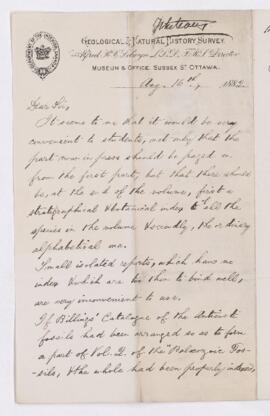 Whiteaves
GEOLOGICAL & NATURAL HISTORY SURVEY.
Alfred R. C. Selwyn LL.D., F.R.S. Director
MUSEUM & OFFICE, SUSSEX ST. OTTAWA.
Aug. 16th, 1882.
Dear Sir,
It seems to me that it would be very
convenient to students, not only that the
part now in press should be paged on
from the first part, but that there should
be, at the end of the volume, first a
stratigraphical & botanical index to all the
species in the volume & secondly, the ordinary
alphabetical one.
Small isolated reports, which have no
index & which are too thin to bind well,
are very inconvenient to use.
If Billings' Catalogue of the Anticosti
fossils had been arranged so as to form
a part of Vol. 2. of the "Palæozoic Fos-
sils, & the whole had been properly indexed,